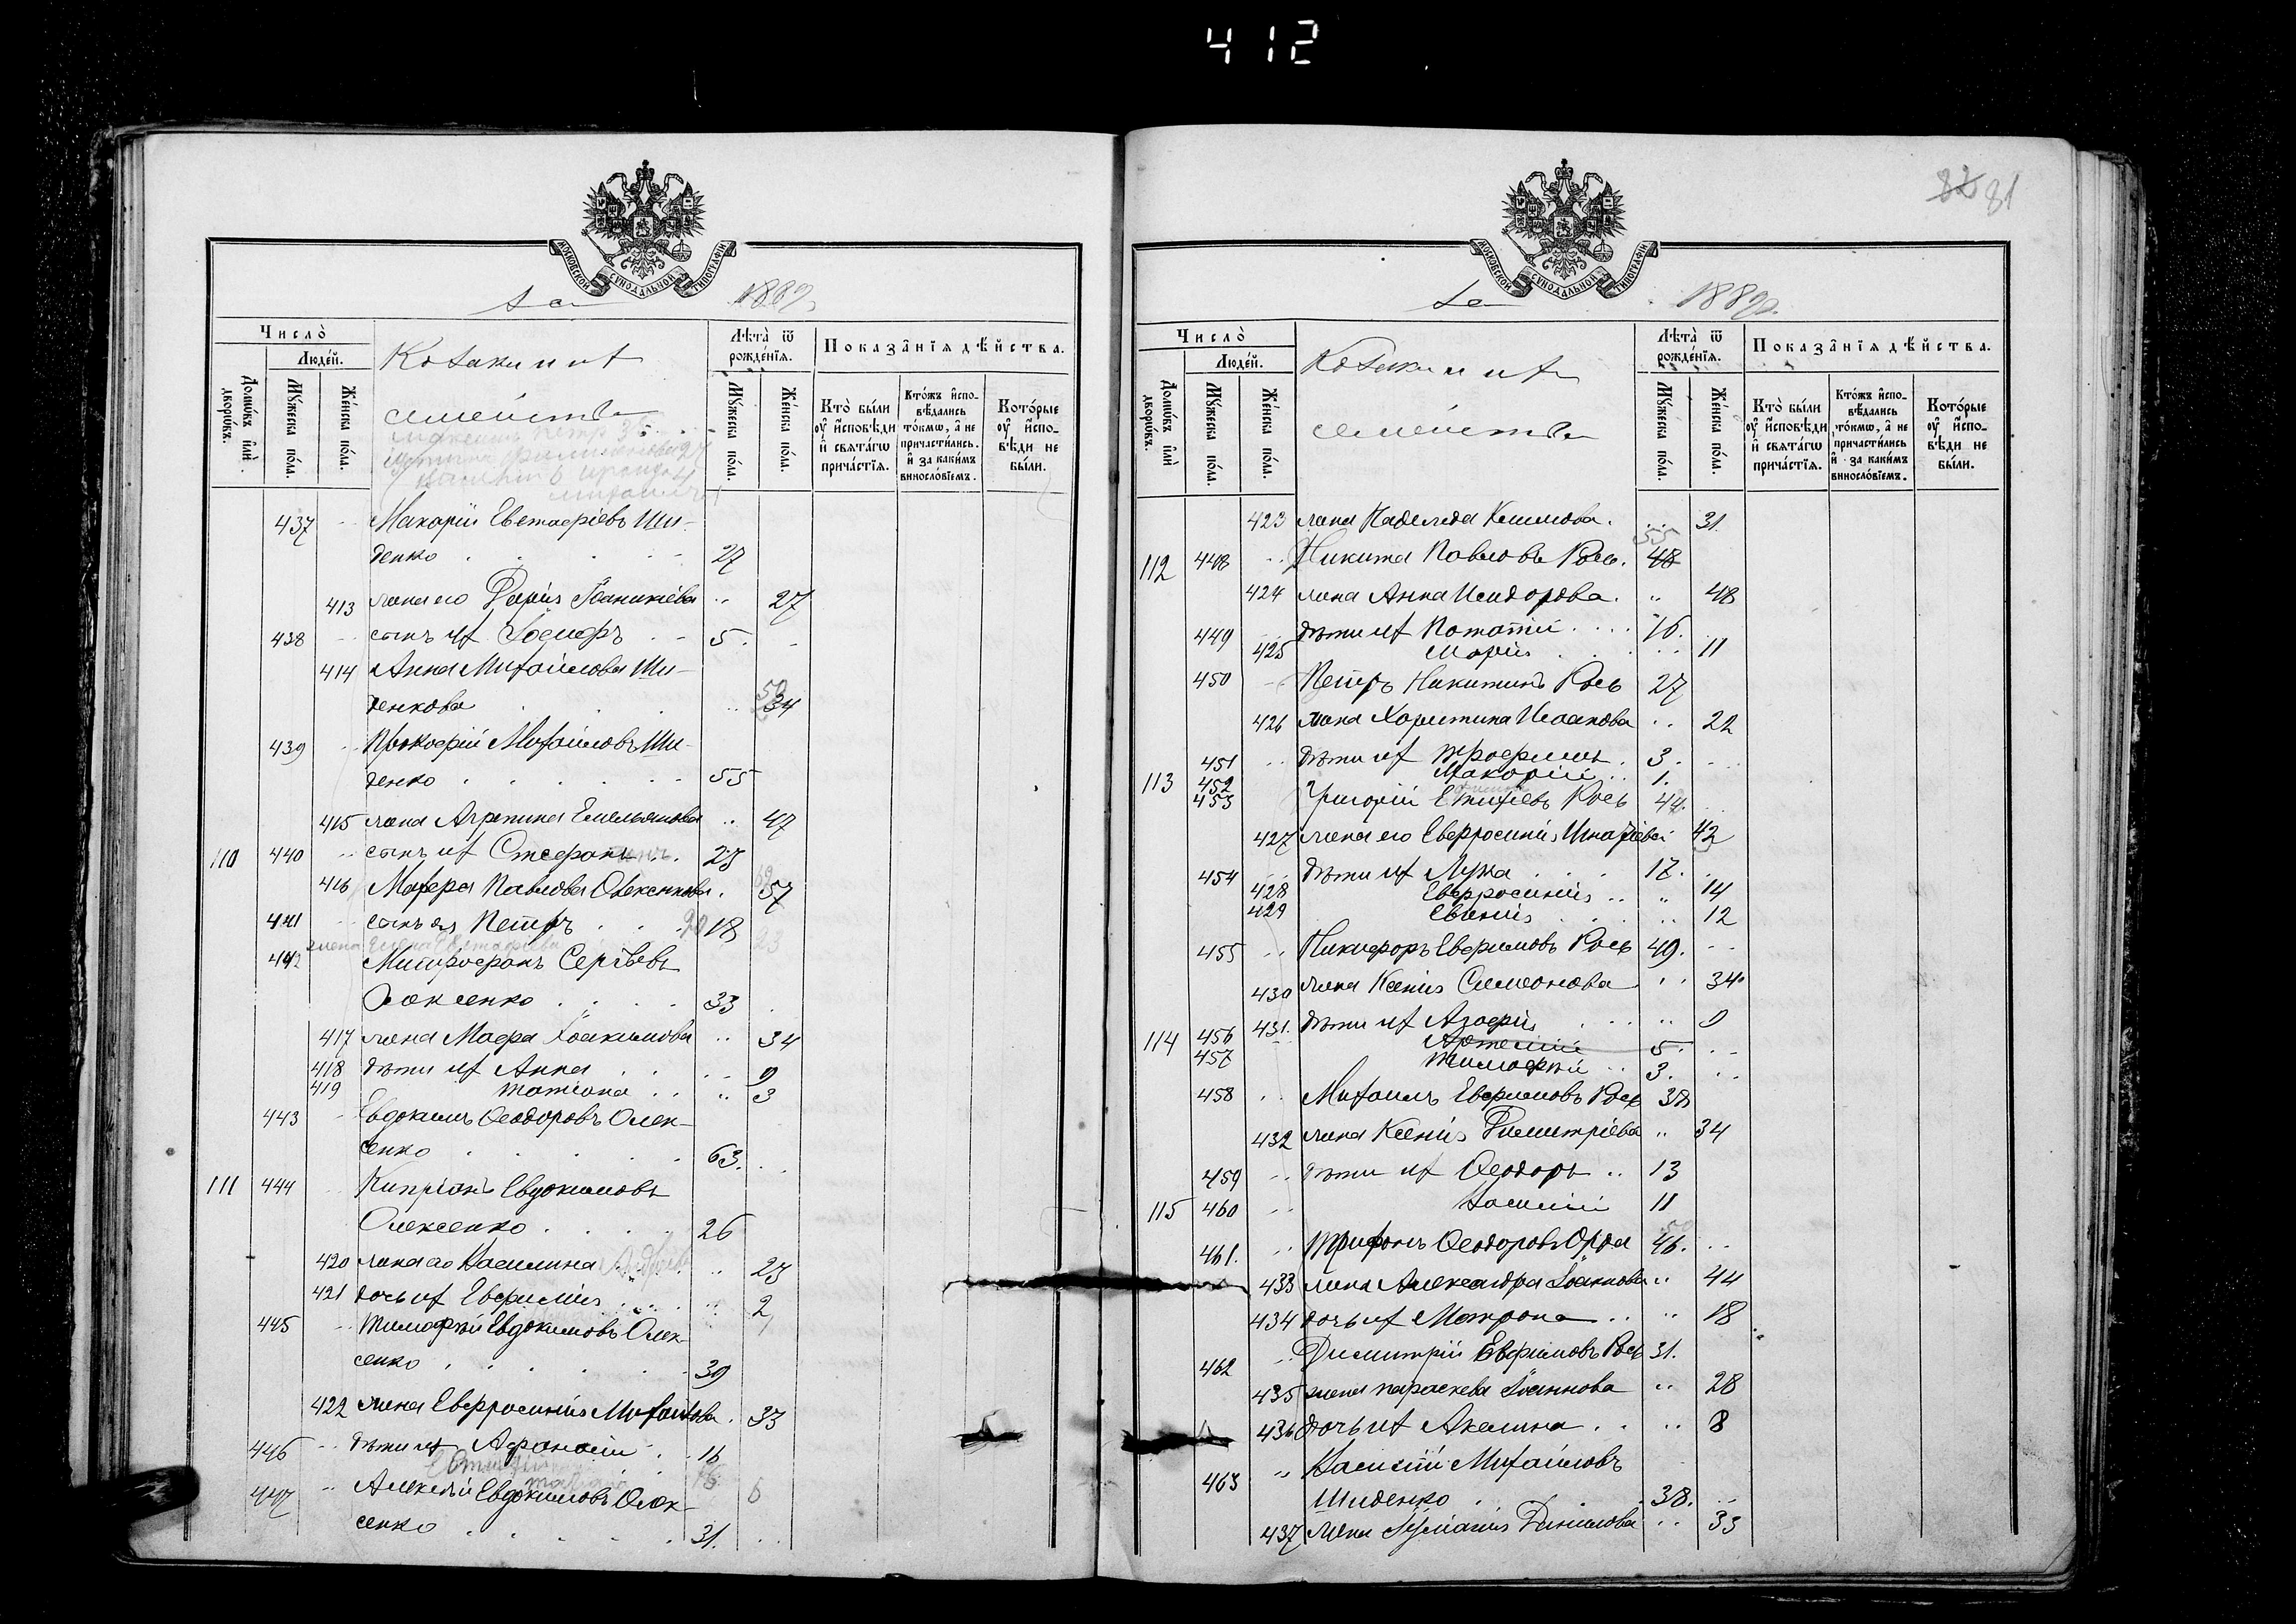 412
МОСКОВСКОЙ СѴНОДАЛЬНОЙ ТИПОГРАФІИ
за 1889
Число̀
Людей.
Домѡвъ и҆лѝ дворѡвъ.
Мꙋжеска пола.
Женска пола.
Козаки и их
семейства
Лѣта̀ ѿ рожденїѧ.
Мꙋжеска пола.
Женска пола.
Показанїѧ дѣйства.
Кто̀ были ᲂу҆ и҆сповѣди и҆ свѧтагѡ причастїѧ.
Ктожъ и҆сповѣдались токмѡ, а҆ не причастились. и҆ за какимъ винословїемъ.
Которые ᲂу҆ и҆сповѣди не были.
437 Макарій Евстафіевъ Ши-
денко 27
413 жена его Дарія Іоаникіева 27
438 сынъ их Іосифъ 5
414 Анна Михайлова Ши-
денкова 50 34
439 Прокофій Михайловъ Ши-
денко 55
415 жена Агрипина Емельянова 47
110 440 сынъ их Стефанъ 23
416 Марфа Павлова Олексенкова 57
441 сынъ ея Петръ 18
жена Елена Евстафіева 23
442 Митрофанъ Сергѣевъ
Олексенко 33
417 жена Марфа Іоакимова 34
418 дѣти их Анна 9
419 Татіана 3
443 Евдокимъ Ѳеодоровъ Олек-
сенко 63
111 444 Кипріанъ Евдокимовъ
Олексенко 26
420 жена его Василина 23
421 дочь их Евфимія 2
445 Тимофей Евдокимовъ Олек-
сенко 39
422 жена Евфросинія Михайлова 33
446 дѣти их Афанасій 16
447 Алексѣй Евдокимовъ Олек-
сенко 31
82 81
МОСКОВСКОЙ СѴНОДАЛЬНОЙ ТИПОГРАФІИ
за 1889
Число̀
Людей.
Домѡвъ и҆лѝ дворѡвъ.
Мꙋжеска пола.
Женска пола.
Козаки и их
семейства
Лѣта̀ ѿ рожденїѧ.
Мꙋжеска пола.
Женска пола.
Показанїѧ дѣйства.
Кто̀ были ᲂу҆ и҆сповѣди и҆ свѧтагѡ причастїѧ.
Ктожъ и҆сповѣдались токмѡ, а҆ не причастились и҆ за какимъ винословїемъ.
Которые ᲂу҆ и҆сповѣди не были.
423 жена Надежда Климова 31
55
112 448 Никита Павловъ Рось 48
424 жена Анна Исидорова 48
449 дѣти их Потапій 16
425 Марія 11
450 Петръ Никитинъ Рось 27
426 жена Харитина Исаакова 22
451 дѣти их Трофимъ 3
113 452 Макарій 1
453 Григорій Рось 44
427 жена его Евфросинія Игнатіева 42
454 дѣти их Лука 17
428 Евфросинія 14
429 Евгенія 12
455 Никифоръ Евфимовъ Рось 49
430 жена Ксенія Симеонова 34
431 дѣти их Агафія 9
114 456 Артемій 5
457 Тимофей 3
458 Михаилъ Евфимовъ Рось 38
432 жена Ксенія Димитріева 34
459 дѣти их Ѳеодоръ 13
115 460 Василій 11
50
461 Трифонъ Ѳеодоровъ Орда 46
433 жена Александра Іоаннова 44
434 дочь их Матрона 18
462 Димитрій Евфимовъ Рось 31
435 жена Параскева Іоаннова 28
436 дочь их Акилина 8
463 Василій Михайловъ
Шиденко 38
437 жена Іуліанія Данилова 33